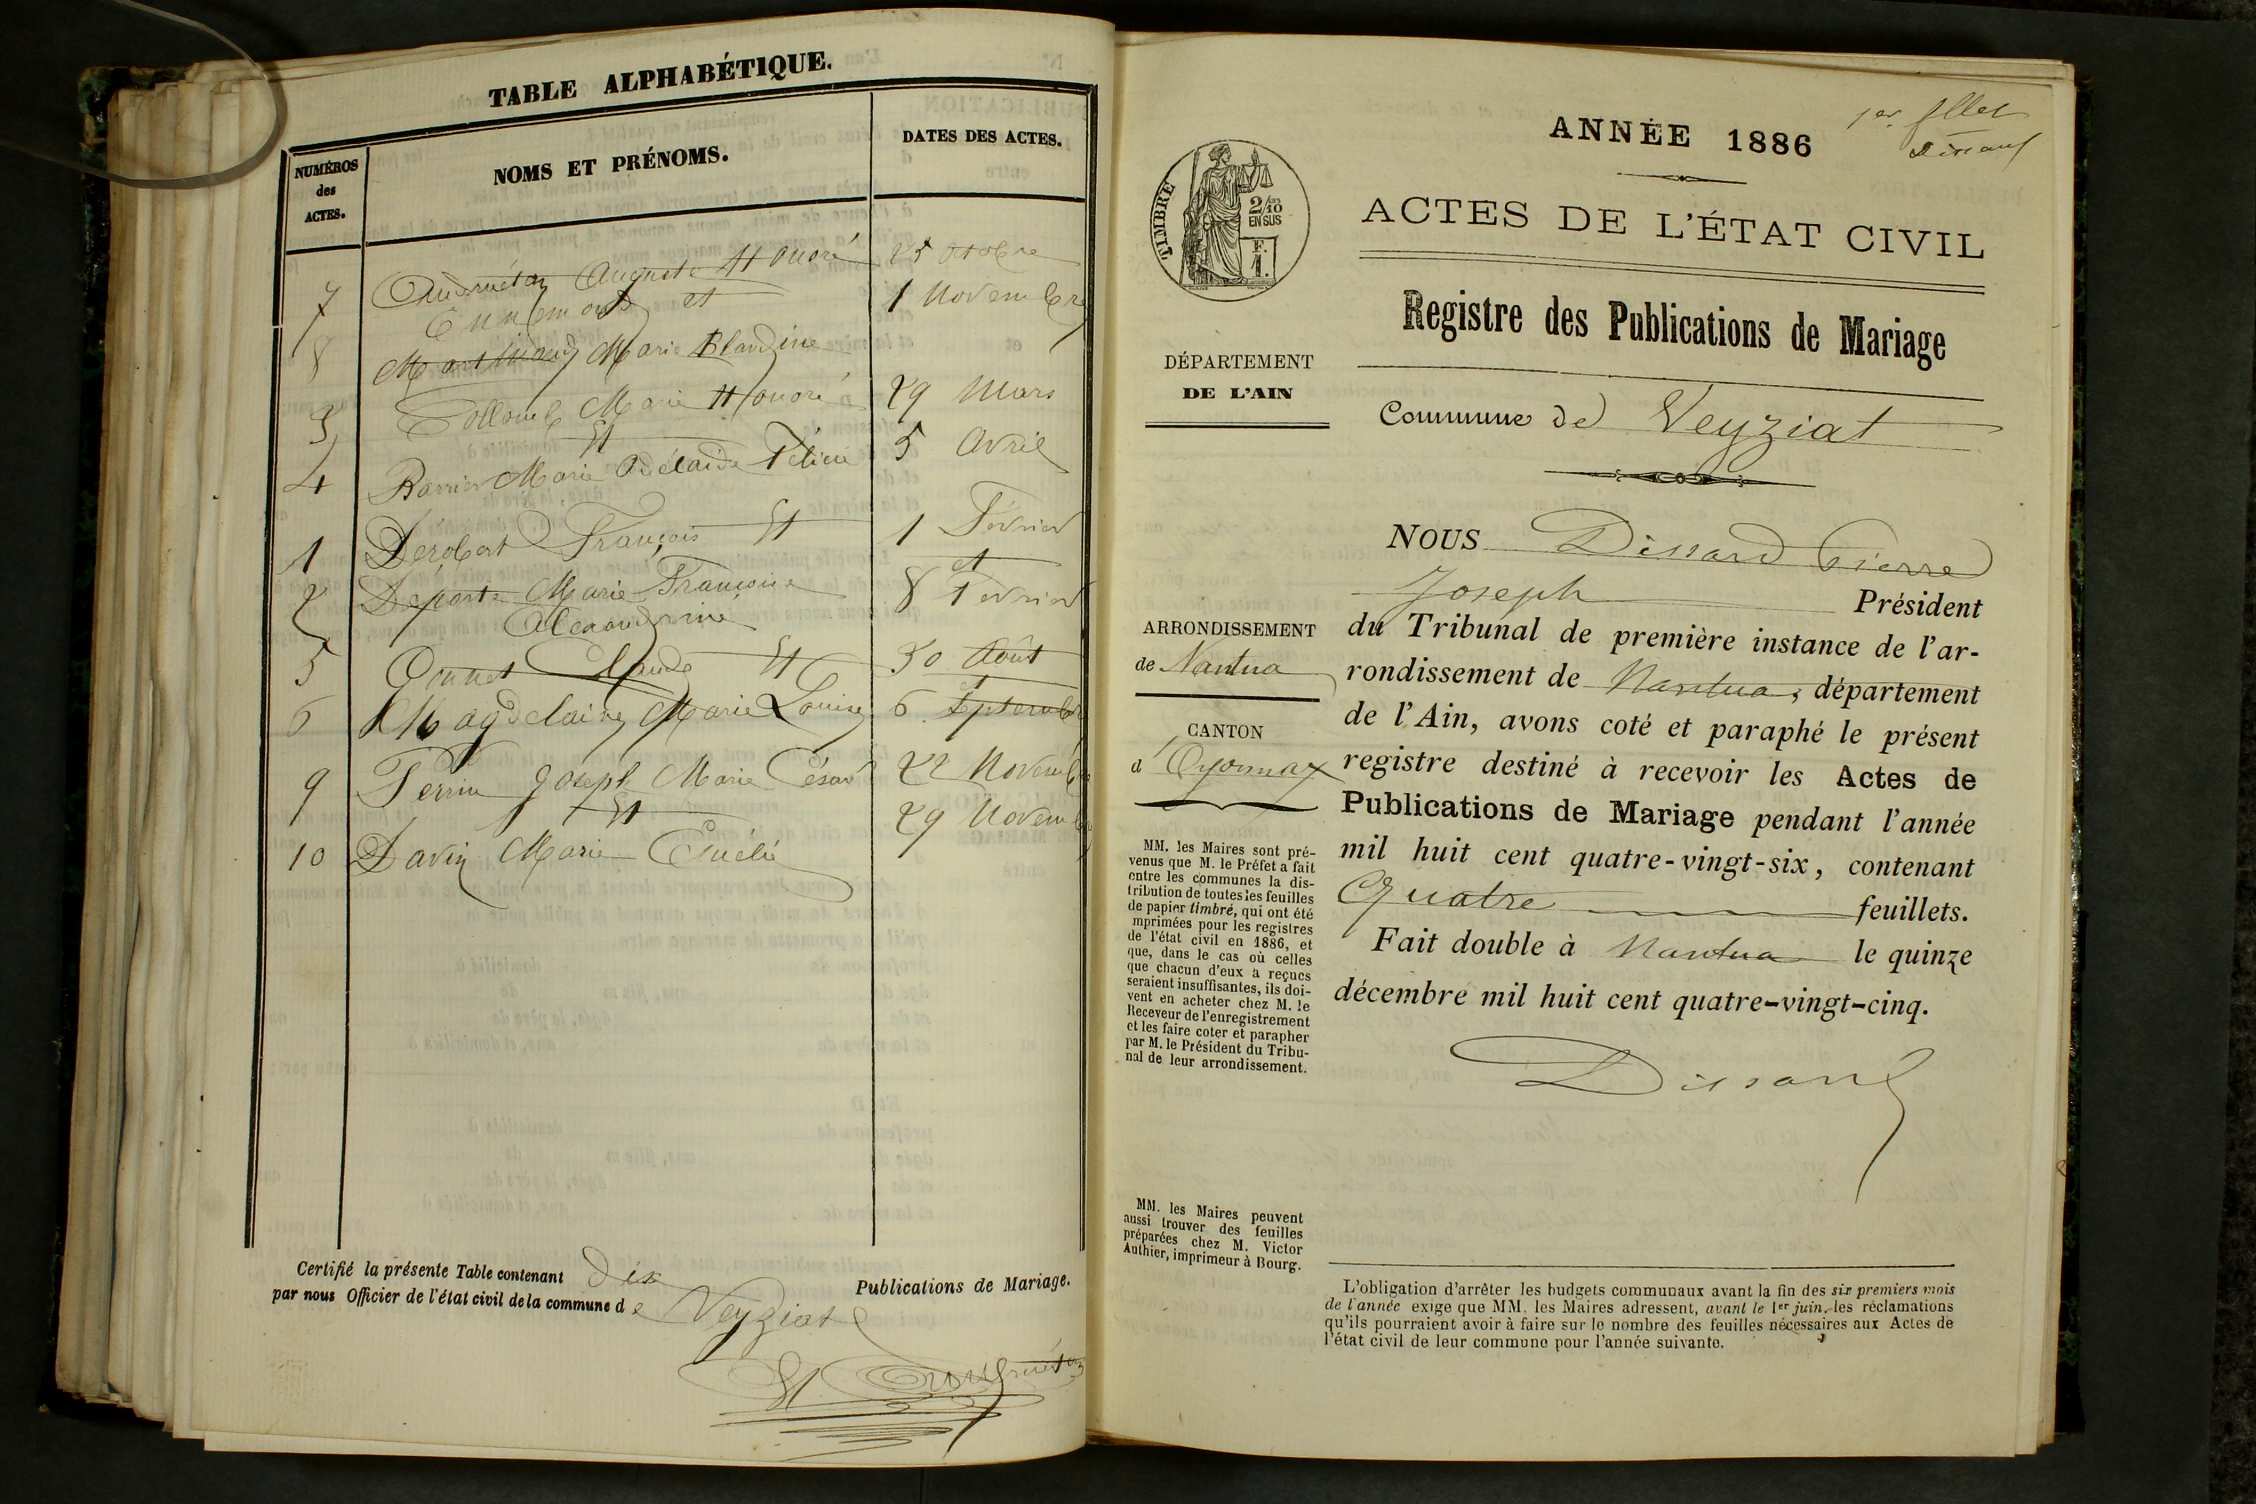 TABLE ALPHABÉTIQUE.
NUMÉROS
des
ACTES.
NOMS ET PRÉNOMS.
DATES DES ACTES.
7 Auguste Honoré 25 octobre
et 1 Novembre
8 Marie Blandine
3 Collomb Marie Honoré 29 Mars
Et
4 Barrier Marie Adélaïde Félicie 5 Avril
1 Derobert François Et 1 Février
et
2 Deporte Marie Françoise 8 Février
Alexandrine
5 Gonnet Claude Et 30 Août
et
6 Magdelaine Marie Louise 6 Septembre
9 Perrin Joseph Marie César 22 Novembre
Et
29 Novembre
10 Davin Marie
Certifié la présente Table contenant dix Publications de Mariage.
par nous Officier de l'état civil de la commune de Veyziat
1er fllet
Dissard
ANNÉE 1886
ACTES DE L'ÉTAT CIVIL
TIMBRE
2/10
EN SUS
F.
1.
Registre des Publications de Mariage
DÉPARTEMENT
DE L'AIN
Commune de Veyziat
ARRONDISSEMENT
de Nantua
CANTON
d'Oyonnax
MM. les Maires sont pré-
venus que M. le Préfet a fait
entre les communes la dis-
tribution de toutes les feuilles
de papier timbré, qui ont été
mprimées pour les registres
de l'état civil en 1886, et
que, dans le cas où celles
que chacun d'eux a reçues
seraient insuffisantes, ils doi-
vent en acheter chez M. le
Receveur de l'enregistrement
et les faire coter et parapher
par M. le Président du Tribu-
nal de leur arrondissement.
MM. les Maires peuvent
aussi trouver des feuilles
préparées chez M. Victor
Authier, imprimeur à Bourg.
NOUS Dissard Pierre
Joseph Président
du Tribunal de première instance de l'ar-
rondissement de Nantua, département
de l'Ain, avons coté et paraphé le présent
registre destiné à recevoir les Actes de
Publications de Mariage pendant l'année
mil huit cent quatre-vingt-six, contenant
Quatre feuillets.
Fait double à Nantua le quinze
décembre mil huit cent quatre-vingt-cinq.
Dissard
L'obligation d'arrêter les budgets communaux avant la fin des six premiers mois
de l'année exige que MM. les Maires adressent, avant le 1er juin, les réclamations
qu'ils pourraient avoir à faire sur le nombre des feuilles nécessaires aux Actes de
l'état civil de leur commune pour l'année suivante.